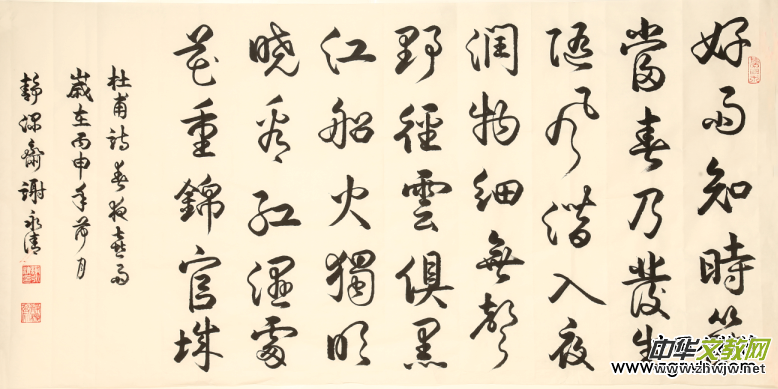 好雨知時節
當春乃發生
随風潛入夜
润物细無聲
野徑雲俱黑
江船火獨明
晓看红濕處
花重錦官城
杜甫诗春夜喜雨
歲在丙申年荷月
靜深齋謝永清
中华文教网
www.zhwjw.net